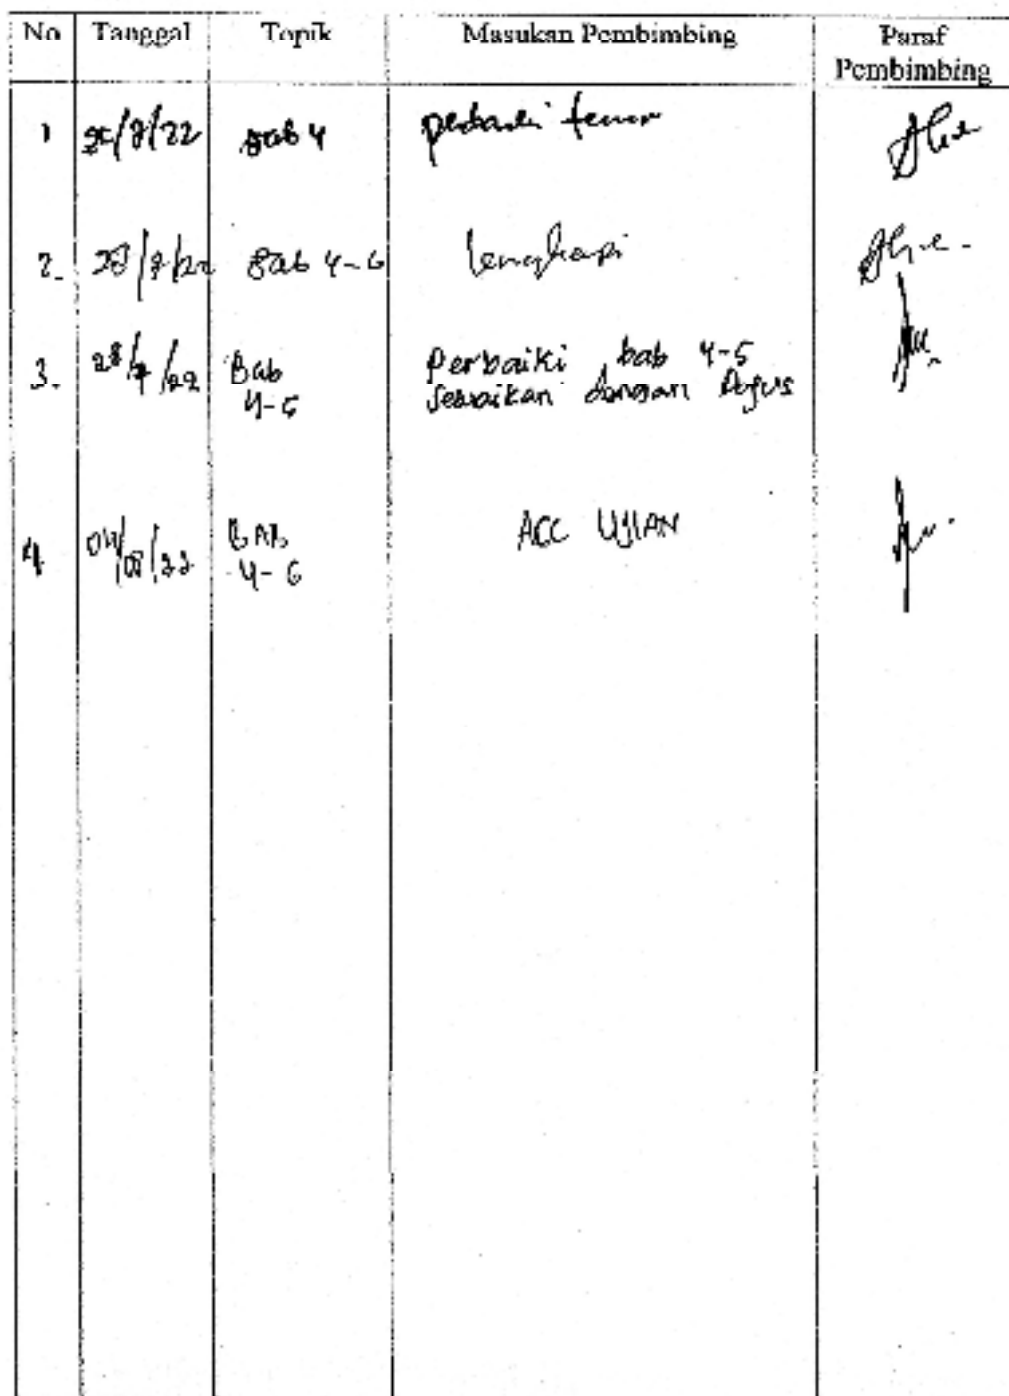 No Tanggal Topik Masukan Pembimbing Paraf
Pembimbing
1 /22 Bab 4
2. 28/7/22 Bab 4-6 lengkapi
3. 28/7/22 Bab Perbaiki bab 4-5
4-5 Sesuaikan dengan
4. 04/08/22 BAB ACC UJIAN
4-6